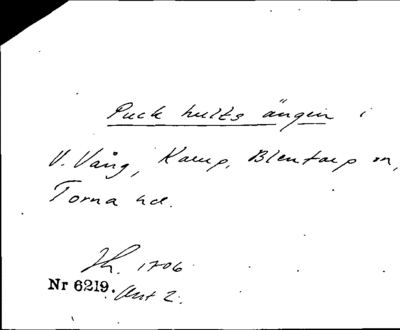 Puck hults ängen i
V. Vång, Kamp, Blentarp sn,
Torna hd.
Jh. 1706
Nr 6219. Akt 2.